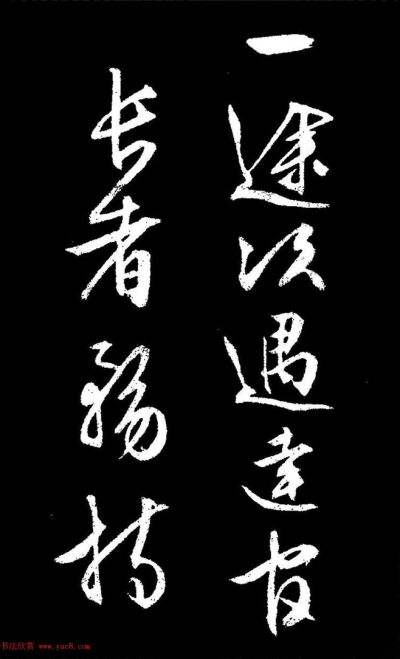 一途次遇達官
長者務持
书法欣赏 www.yac8.com